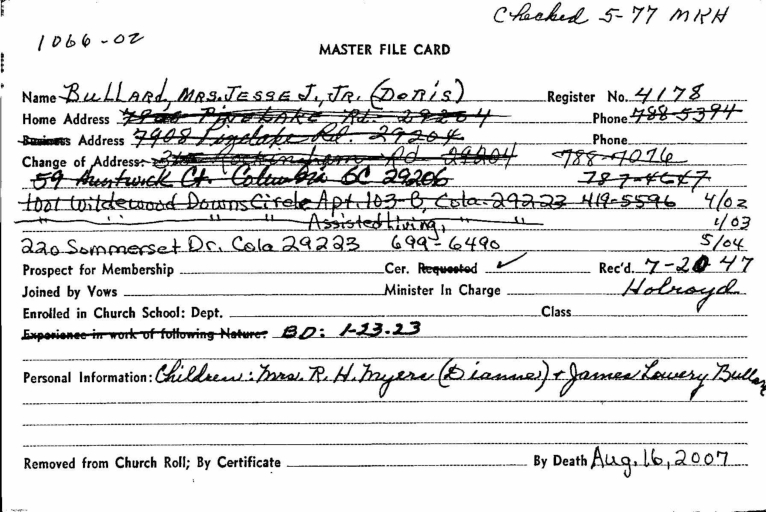 Checked 5-77 MRH
1066-02
MASTER FILE CARD
Name Bullard, Mrs. Jesse J., Jr. (Doris) Register No. 4178
Home Address 7908 Pinelake Rd. 29204 Phone 788-5394
Business Address 7908 Pinelake Rd. 29204 Phone
Change of Address: Rd 29204 788-7076
59 Huntwick Ct. Columbia SC 29206 787-4647
1001 Wildewood Downs Circle Apt. 103-B, Cola. 29223 419-5596 4/02
" " " Assisted Living, " " 1/03
220 Sommerset Dr. Cola 29223 699-6490 5/04
Prospect for Membership Cer. Requested ✓ Rec'd. 7-20 47
Joined by Vows Minister In Charge Holroyd
Enrolled in Church School: Dept. Class
Experience in work of following Nature: BD: 1-23.23
Personal Information: Children: Mrs. R. H. Myers (Dianne) + James Lowery Bullar
Removed from Church Roll; By Certificate By Death Aug. 16, 2007